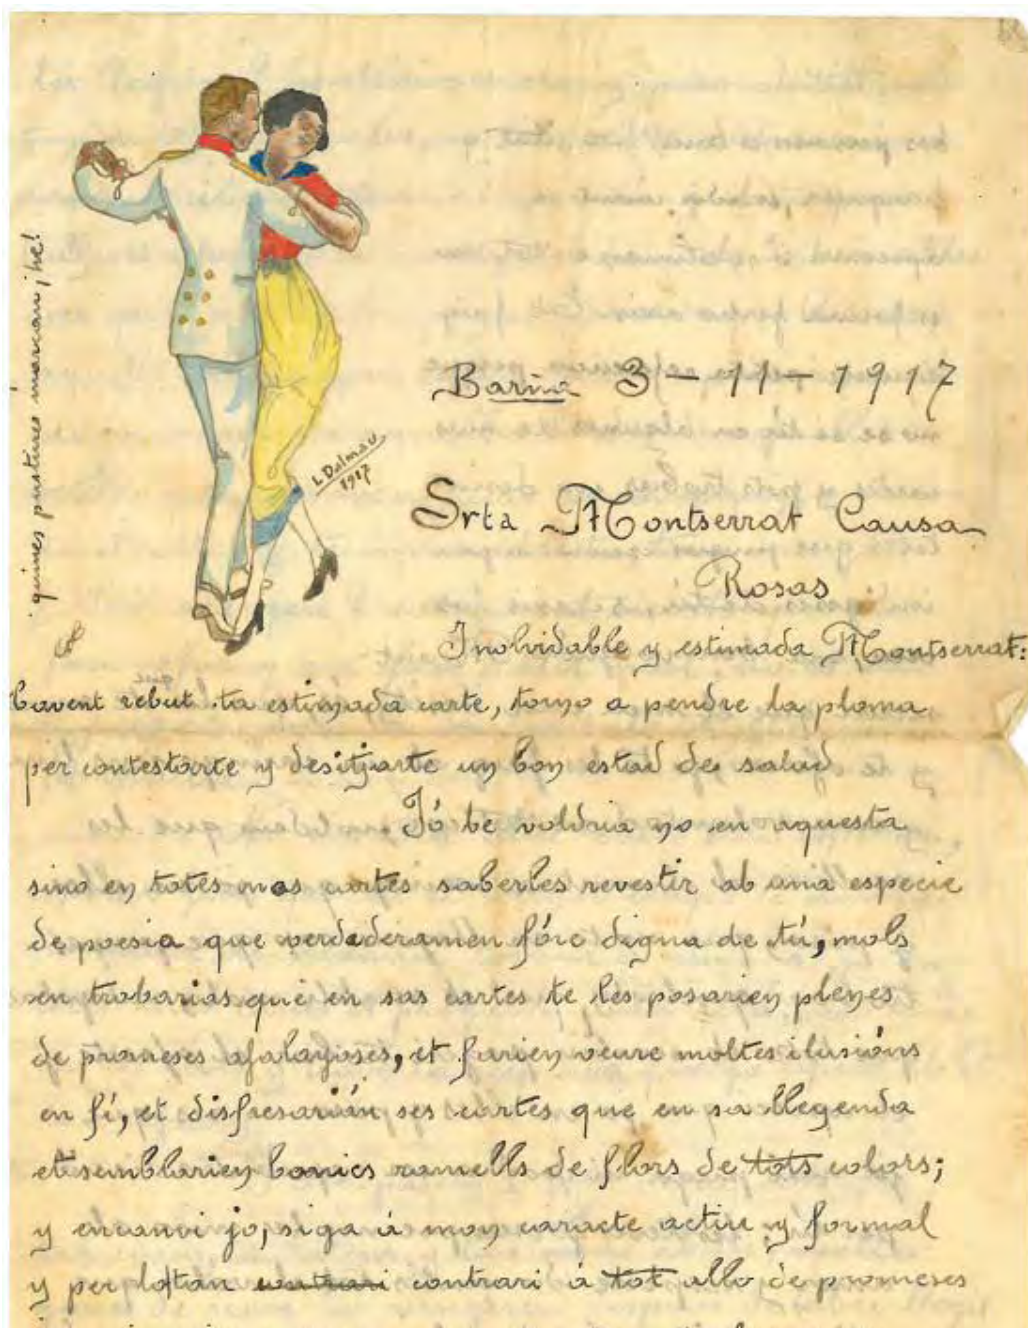 quines postures marcan, he!
L Dalmau
1917
Barna 3-11-1917
Srta Montserrat Causa
Rosas
Inolvidable y estimada Montserrat:
Havent rebut ta estimada carte, que torno a pendre la ploma
per contestarte y desitjarte un bon estad de salud
Jó be voldria no en aquesta
sino en totes mes cartes saberles revestir ab una especie
de poesia que verdaderamen fóre digna de tú, mols
en trobarias que en sas cartes te les posarien plenes
de promeses afalagoses, et farien veure moltes ilusións
en fí, et disfresarián ses cartes que en sa llegenda
et semblarien bonics ramells de flors de tots colors;
y encanvi jo, siga á mon caracte actiu y formal
y per lotan contrari contrari á tot allo de promeses